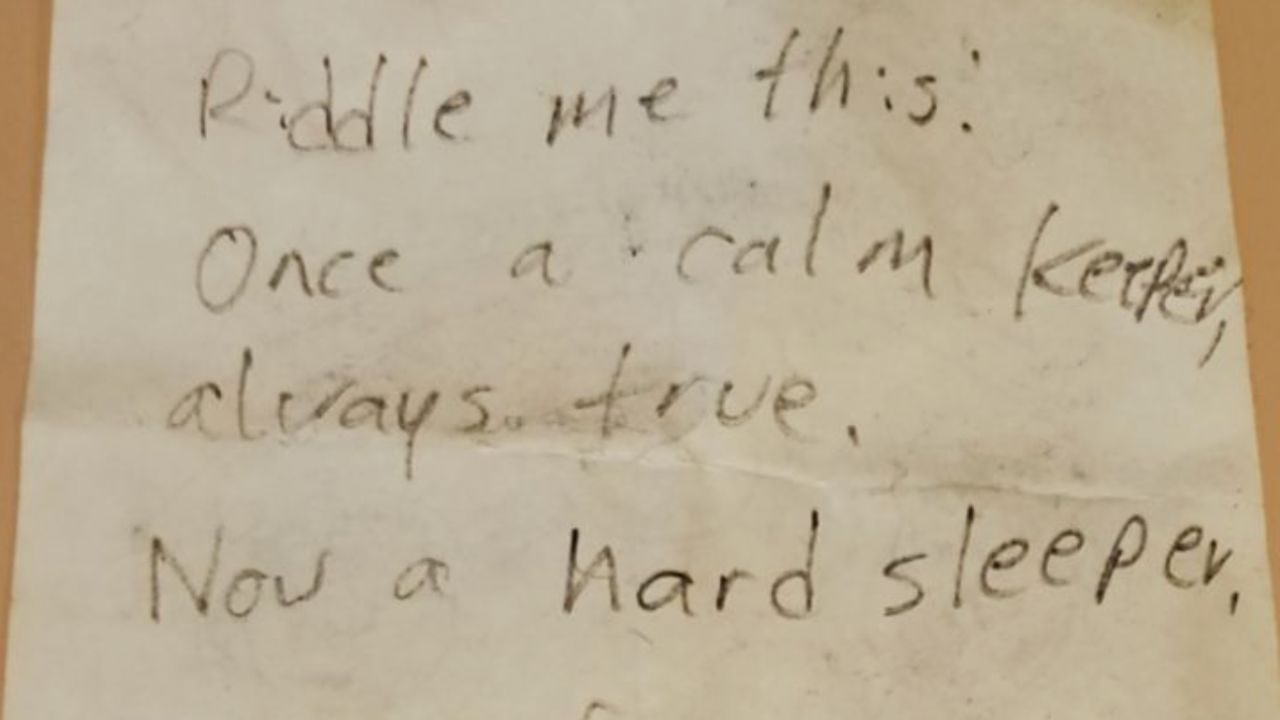 Riddle me this:
Once a calm keeper,
always true.
Now a hard sleeper,